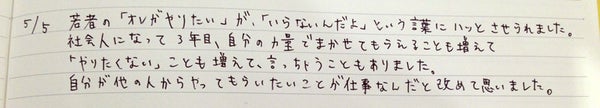 5/5 若者の「オレがやりたい」が、「いらないんだよ」という言葉にハッとさせられました。
社会人になって3年目、自分の力量でまかせてもらえることも増えて
「やりたくない」ことも増えて、言っちゃうこともありました。
自分が他の人からやってもらいたいことが仕事なんだと改めて思いました。